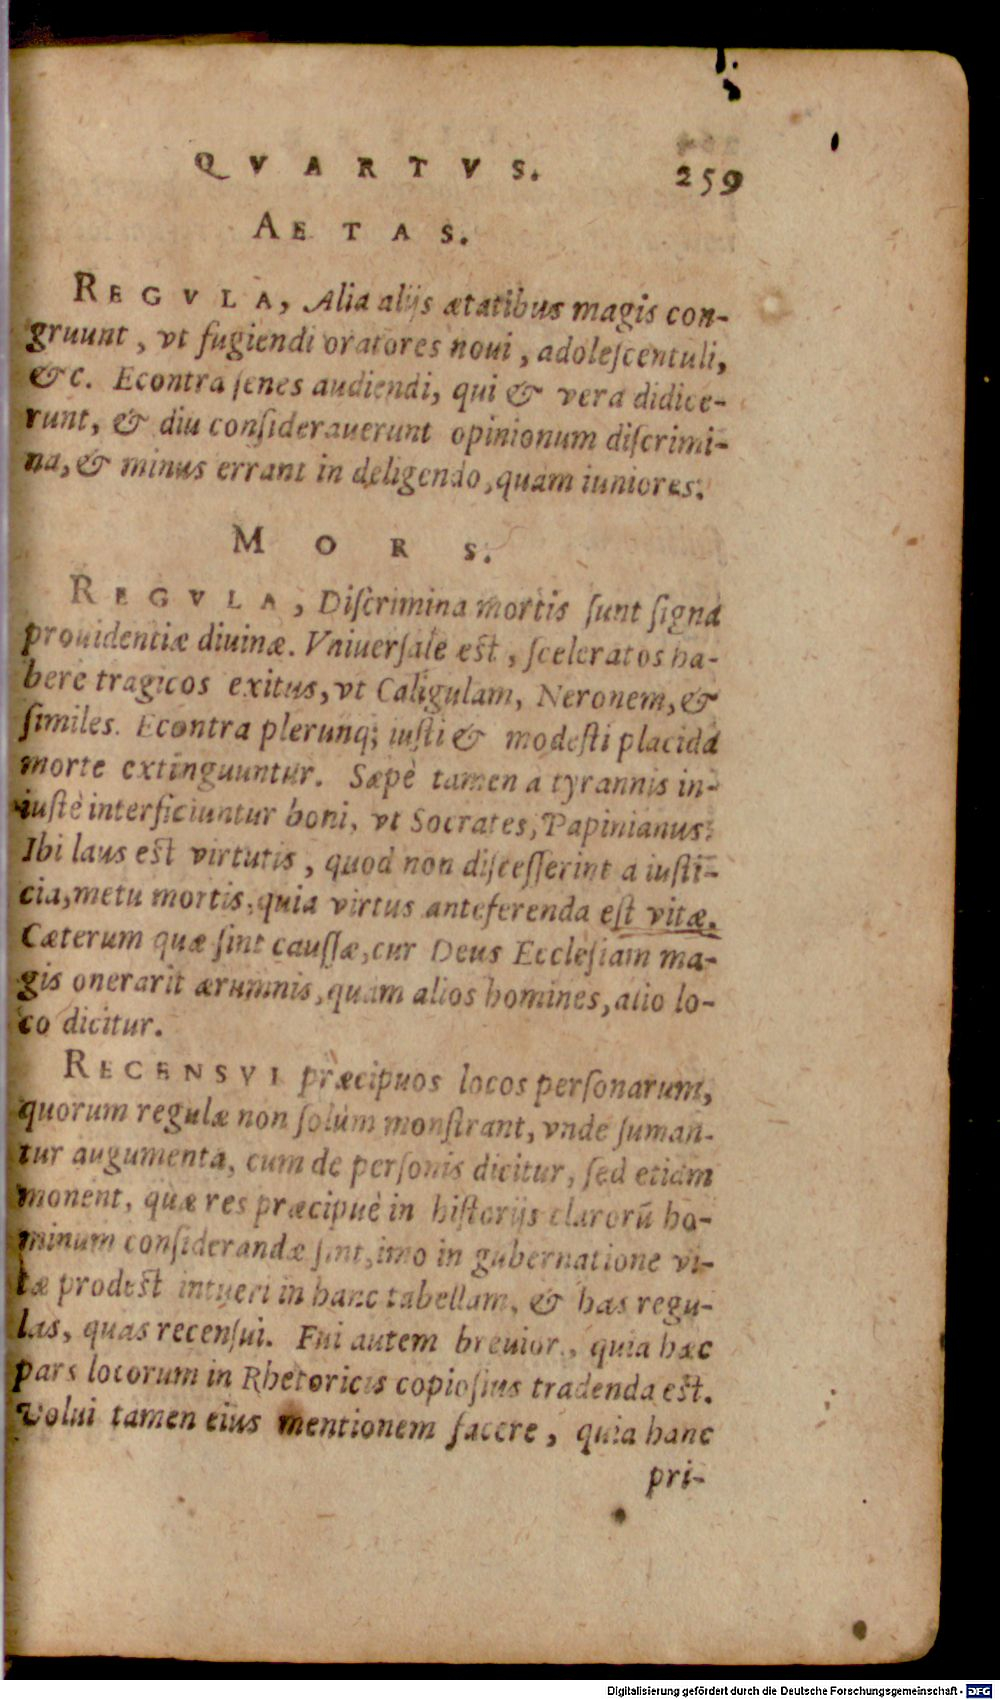 QVARTVS. 259
AETAS.
REGVLA, Alia alijs ætatibus magis con-
gruunt, vt fugiendi oratores noui, adoleſcentuli,
&c. Econtra ſenes audiendi, qui & vera didice-
runt, & diu conſiderauerunt opinionum diſcrimi-
na, & minus errant in deligendo, quam iuniores.
MORS.
REGVLA, Diſcrimina mortis ſunt ſigna
prouidentiæ diuinæ. Vniuerſale est, ſceleratos ha-
bere tragicos exitus, vt Caligulam, Neronem, &
ſimiles. Econtra plerunq; iuſti & modeſti placida
morte extinguuntur. Sæpè tamen a tyrannis in-
iuſtè interficiuntur boni, vt Socrates, Papinianus.
Ibi laus est virtutis, quod non diſceſſerint a iuſti-
cia, metu mortis, quia virtus anteferenda eſt vitæ.
Cæterum quæ ſint cauſſæ, cur Deus Eccleſiam ma-
gis onerarit ærumnis, quam alios homines, alio lo-
co dicitur.
RECENSVI præcipuos locos perſonarum,
quorum regulæ non ſolùm monſtrant, vnde ſuman-
tur augumenta, cum de perſonis dicitur, ſed etiam
monent, quæ res præcipuè in hiſtorijs clarorū ho-
minum conſiderandæ ſint, imo in gubernatione vi-
tæ prodest intueri in hanc tabellam, & has regu-
las, quas recenſui. Fui autem breuior, quia hæc
pars locorum in Rhetoricis copioſius tradenda est.
Volui tamen eius mentionem facere, quia hanc
pri-
Digitalisierung gefördert durch die Deutsche Forschungsgemeinschaft - DFG